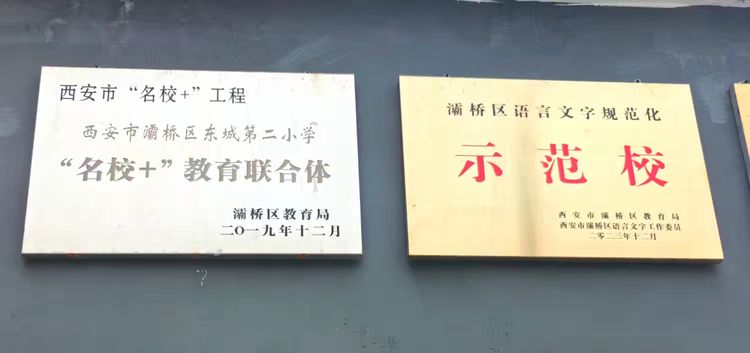 西安市“名校+”工程
西安市灞桥区东城第二小学
“名校+”教育联合体
灞桥区教育局
二〇一九年十二月
灞桥区语言文字规范化
示范校
西安市灞桥区教育局
西安市灞桥区语言文字工作委员
二零二三年十二月